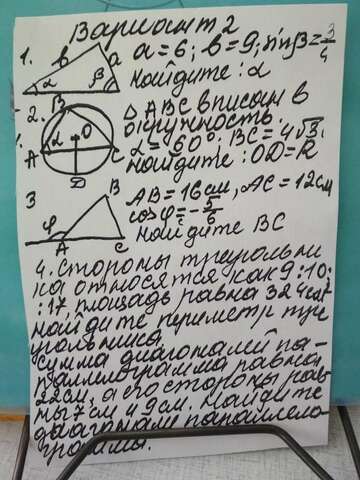 Вариант 2
1. b a a = 6; b = 9; sin β = 3/4
α β найдите: α
2. B △ ABC вписан в
окружность.
α O α = 60°. BC = 4√3.
A C найдите: OD = R
D
3 B AB = 16 см, AC = 12 см
φ cos φ = -5/6
A C найдите BC
4. Стороны треугольни
ка относятся как 9:10:
:17, площадь равна 324 см²
найдите периметр тре
угольника.
сумма диагоналей па-
раллелограмма равна
22 см, а его стороны рав
ны 7 см и 9 см. Найдите
диагонали параллело
грамма.